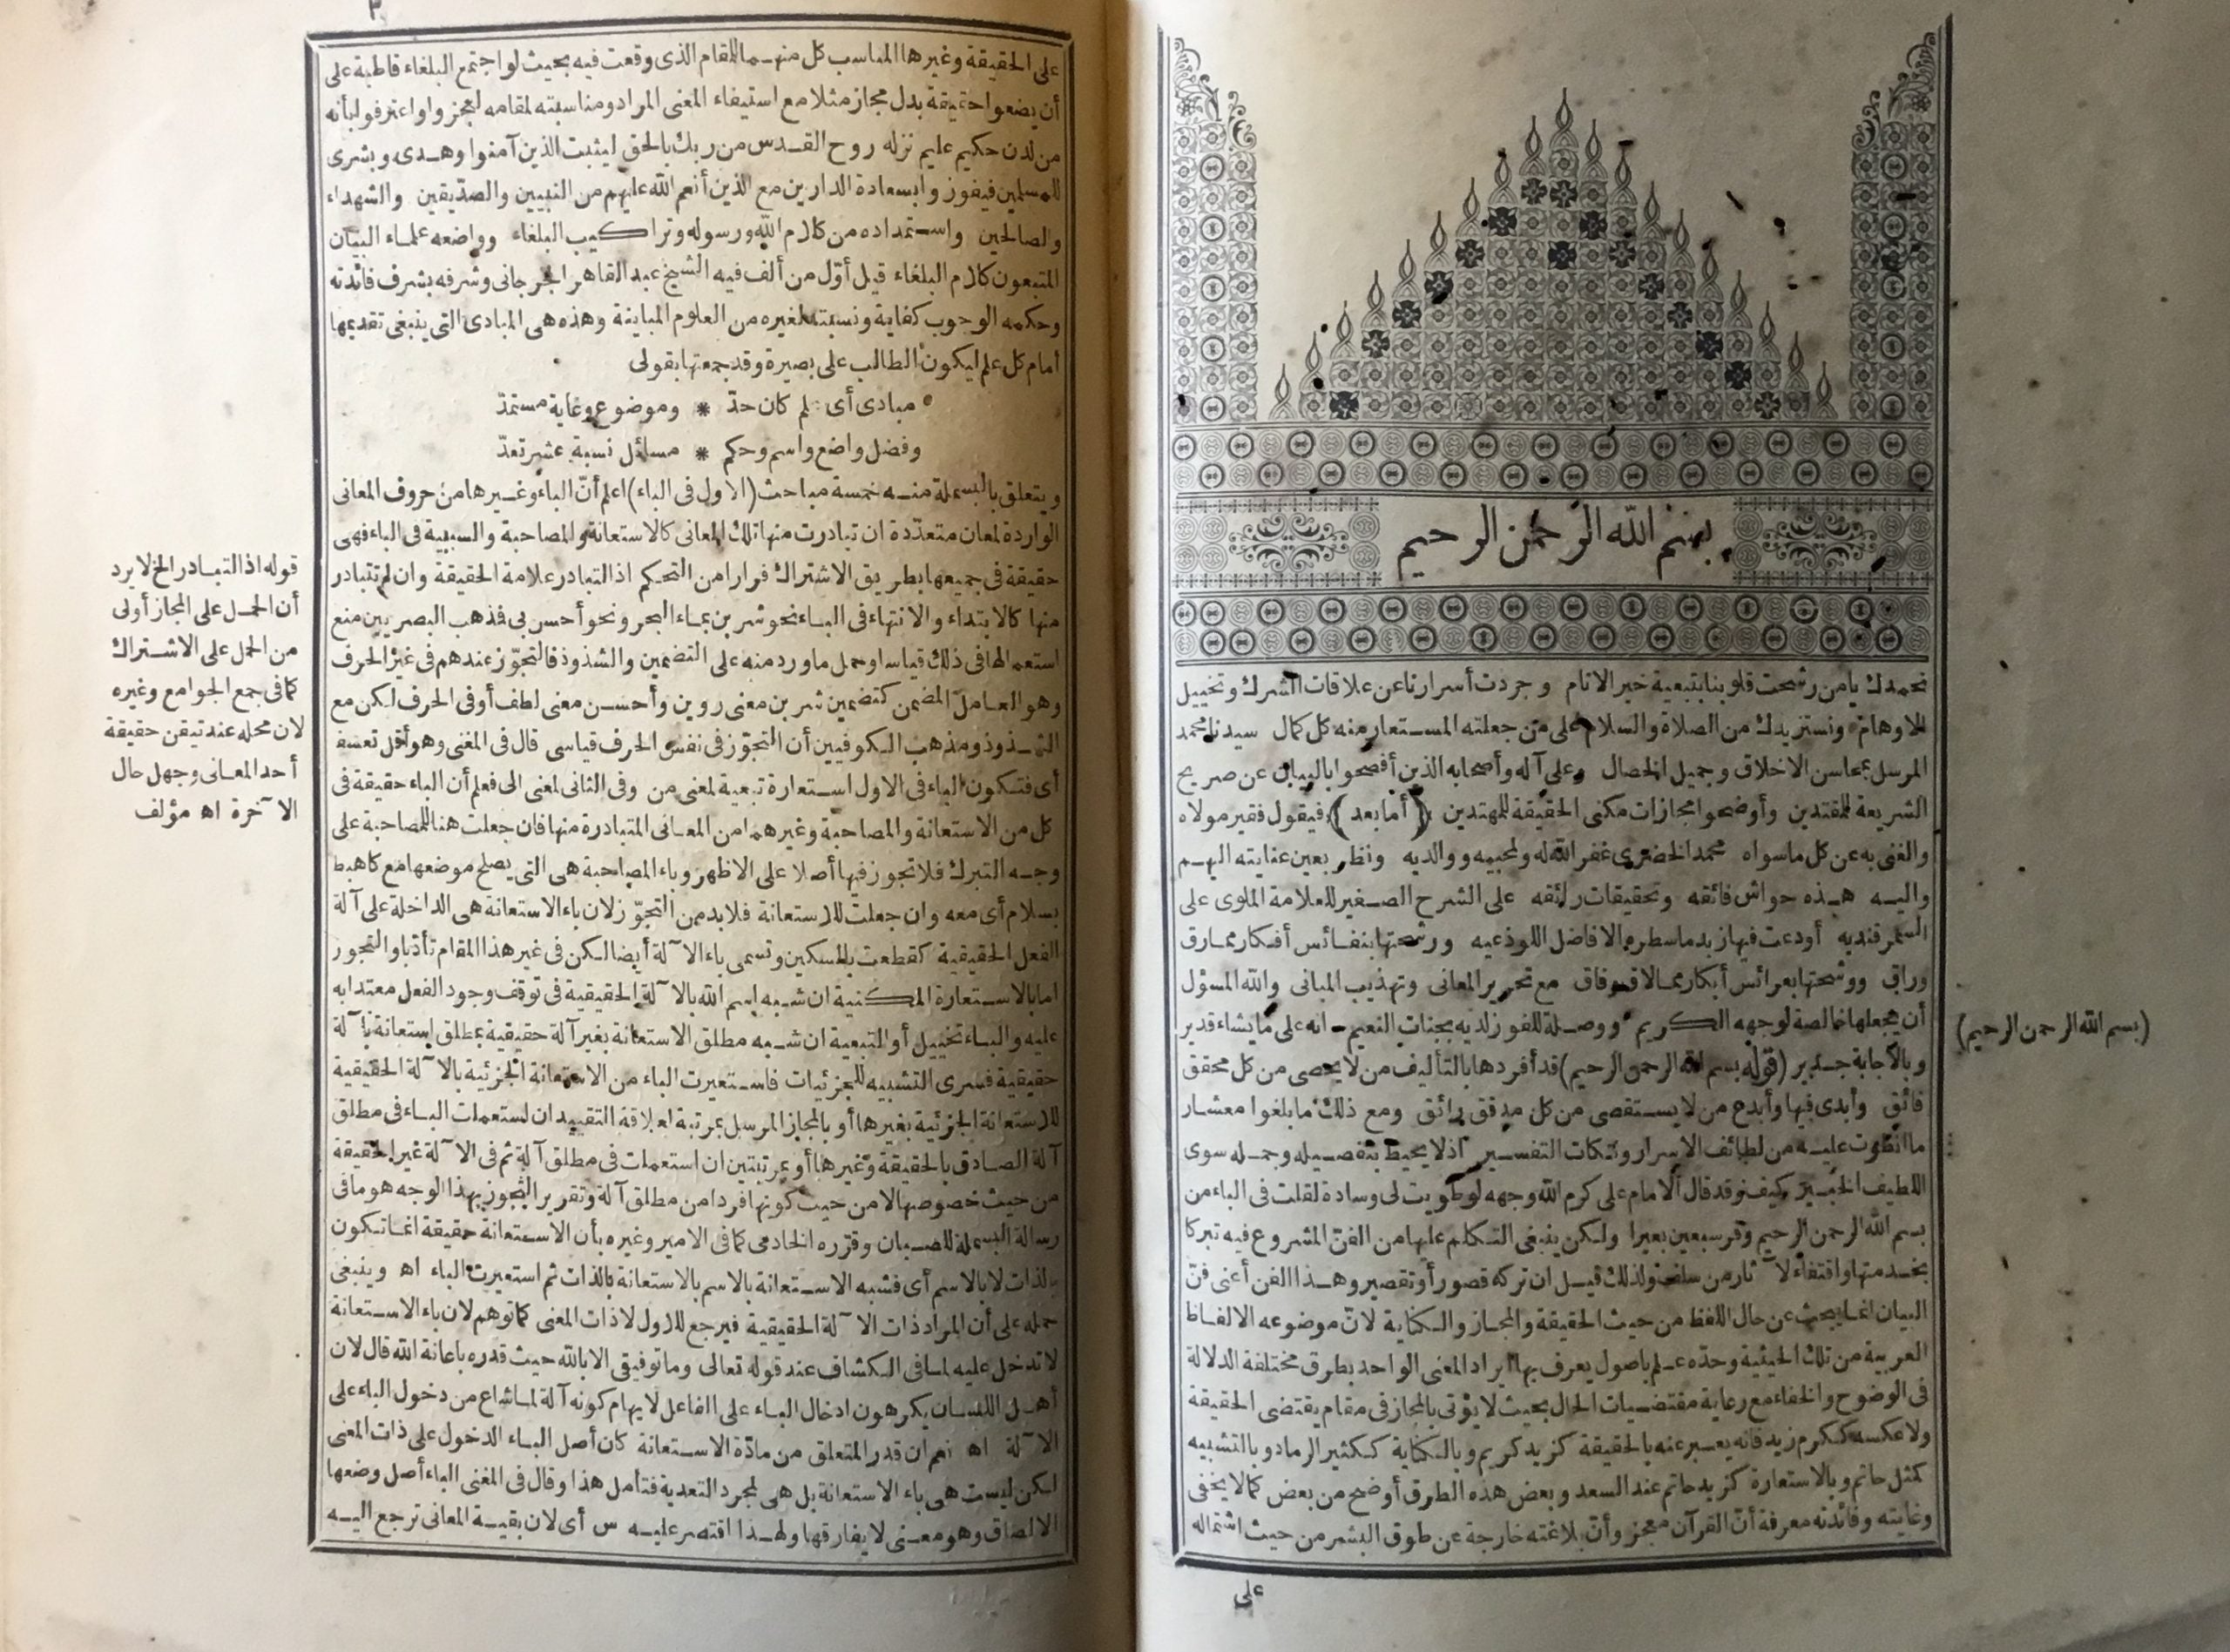 بسم الله الرحمن الرحيم
نحمدك يا من رشحت قلوبنا بتبعية خير الانام وجردت أسرارنا عن علاقات الشرك وتخييل
الاوهام ونستزيدك من الصلاة والسلام على من جعلته المستعار منه كل كمال سيدنا محمد
المرسل بمحاسن الاخلاق وجميل الخصال وعلى آله وأصحابه الذين أفصحوا بالبيان عن صريح
الشريعة للمقتدين وأوضحوا مجازات مكنى الحقيقة للمهتدين (أما بعد) فيقول فقير مولاه
والغنى به عن كل ما سواه محمد الخضرى غفر الله له ولمحبيه ووالديه ونظر بعين عنايته اليهم
واليه هذه حواش فائقه وتحقيقات رائقه على الشرح الصغير للعلامة الملوى على
السمرقنديه أودعت فيها زبد ما سطره الافاضل اللوذعيه ورشحتها بنفائس أفكار مما رق
وراق ووشحتها بعرائس أبكار مما لاق وفاق مع تحرير المعانى وتهذيب المبانى والله المسؤل
أن يجعلها خالصة لوجهه الكريم ووصلة للفوز لديه بجنات النعيم انه على ما يشاء قدير
وبالاجابة جدير (قوله بسم الله الرحمن الرحيم) قد أفردها بالتأليف من لا يحصى من كل محقق
فائق وأبدى فيها وأبدع من لا يستقصى من كل مدقق رائق ومع ذلك ما بلغوا معشار
ما انطوت عليه من لطائف الاسرار ونكات التفسير اذ لا يحيط بتفصيله وجمله سوى
اللطيف الخبير كيف وقد قال الامام على كرم الله وجهه لو طويت لى وسادة لقلت فى الباء من
بسم الله الرحمن الرحيم وقر سبعين بعيرا ولكن ينبغى التكلم عليها من الفن المشروع فيه تبركا
بخدمتها واقتفاء لآثار من سلف ولذلك قيل ان تركه قصور أو تقصير وهذا الفن أعنى فنّ
البيان انما يبحث عن حال اللفظ من حيث الحقيقة والمجاز والكناية لانّ موضوعه الالفاظ
العربية من تلك الحيثية وحدّه علم باصول يعرف بها ايراد المعنى الواحد بطرق مختلفة الدلالة
فى الوضوح والخفاء مع رعاية مقتضيات الحال بحيث لا يؤتى بالمجاز فى مقام يقتضى الحقيقة
ولا عكسه ككرم زيد فانه يعبر عنه بالحقيقة كزيد كريم وبالكناية ككثير الرماد وبالتشبيه
كمثل حاتم وبالاستعارة كزيد حاتم عند السعد وبعض هذه الطرق أوضح من بعض كما لا يخفى
وغايته وفائدته معرفة أنّ القرآن معجز وأنّ بلاغته خارجة عن طوق البشر من حيث اشتماله
على
(بسم الله الرحمن الرحيم)
٣
على الحقيقة وغيرها المناسب كل منهما للمقام الذى وقعت فيه بحيث لو اجتمع البلغاء قاطبة على
أن يضعوا حقيقة بدل مجاز مثلا مع استيفاء المعنى المراد ومناسبته لمقامه لعجزوا واعترفوا بأنه
من لدن حكيم عليم نزله روح القدس من ربك بالحق ليثبت الذين آمنوا وهدى وبشرى
للمسلمين فيفوزوا بسعادة الدارين مع الذين أنعم الله عليهم من النبيين والصدّيقين والشهداء
والصالحين واستمداده من كلام الله ورسوله وتراكيب البلغاء وواضعه علماء البيان
المتبعون كلام البلغاء قيل أوّل من ألف فيه الشيخ عبد القاهر الجرجانى وشرفه بشرف فائدته
وحكمه الوجوب كفاية ونسبته لغيره من العلوم المباينة وهذه هى المبادى التى ينبغى تقديمها
أمام كل علم ليكون الطالب على بصيرة وقد جمعتها بقولى
مبادى أى علم كان حدّ * وموضوع وغاية مستمدّ
وفضل واضع واسم وحكم * مسائل نسبة عشر تعدّ
ويتعلق بالبسملة منه خمسة مباحث (الاول فى الباء) اعلم أنّ الباء وغيرها من حروف المعانى
الواردة لمعان متعدّدة ان تبادرت منها تلك المعانى كالاستعانة والمصاحبة والسببية فى الباء فهى
حقيقة فى جميعها بطريق الاشتراك فرارا من التحكم اذ التبادر علامة الحقيقة وان لم تتبادر
منها كالابتداء والانتهاء فى الباء نحو شربن بماء البحر ونحو أحسن بى فذهب البصريين منع
استعمالها فى ذلك قياسا وحمل ما ورد منه على التضمين والشذوذ فالتجوّز عندهم فى غير الحرف
وهو العامل المضمن كتضمين شربن معنى روين وأحسن معنى لطف أو فى الحرف لكن مع
الشذوذ ومذهب الكوفيين أن التجوّز فى نفس الحرف قياسى قال فى المغنى وهو أقل تعسفا
أى فتكون الباء فى الاول استعارة تبعية لمعنى من وفى الثانى لمعنى الى فعلم أن الباء حقيقة فى
كل من الاستعانة والمصاحبة وغيرهما من المعانى المتبادرة منها فان جعلت هنا للمصاحبة على
وجه التبرك فلا تجوز فيها أصلا على الاظهر وباء المصاحبة هى التى يصلح موضعها مع كاهبط
بسلام أى معه وان جعلت للاستعانة فلا بد من التجوّز لان باء الاستعانة هى الداخلة على آلة
الفعل الحقيقية كقطعت بالسكين وتسمى باء الآلة أيضا لكن فى غير هذا المقام تأدّبا والتجوز
اما بالاستعارة المكنية ان شبه اسم الله بالآلة الحقيقية فى توقف وجود الفعل معتدا به
عليه والباء تخييل أو التبعية ان شبه مطلق الاستعانة بغير آلة حقيقية بمطلق استعانة بآلة
حقيقية فسرى التشبيه للجزئيات فاستعيرت الباء من الاستعانة الجزئية بالآلة الحقيقية
للاستعانة الجزئية بغيرها أو بالمجاز المرسل بمرتبة لعلاقة التقييد ان استعملت الباء فى مطلق
آلة الصادق بالحقيقة وغيرها أو بمرتبتين ان استعملت فى مطلق آلة ثم فى الآلة غير الحقيقة
من حيث خصوصها لا من حيث كونها فردا من مطلق آلة وتقرير التجوز بهذا الوجه هو ما فى
رسالة البسملة للصبان وقرّره الخادمى كما فى الامير وغيره بأن الاستعانة حقيقة انما تكون
بالذات لا بالاسم أى فشبه الاستعانة بالاسم بالاستعانة بالذات ثم استعيرت الباء اه وينبغى
حمله على أن المراد ذات الآلة الحقيقية فيرجع للاول لا ذات المعنى كما توهم لان باء الاستعانة
لا تدخل عليه لما فى الكشاف عند قوله تعالى وما توفيقى الا بالله حيث قدره باعانة الله قال لان
أهل اللسان يكرهون ادخال الباء على الفاعل لايهام كونه آلة لما شاع من دخول الباء على
الآلة اه نعم ان قدر المتعلق من مادّة الاستعانة كان أصل الباء الدخول على ذات المعنى
لكن ليست هى باء الاستعانة بل هى لمجرد التعدية فتأمل هذا وقال فى المغنى الباء أصل وضعها
الالصاق وهو معنى لا يفارقها ولهذا اقتصر عليه س أى لان بقية المعانى ترجع اليه
قوله اذ التبادر الخ لا يرد
أن الحمل على المجاز أولى
من الحمل على الاشتراك
كما فى جمع الجوامع وغيره
لان محله عند تيقن حقيقة
أحد المعانى وجهل حال
الآخرة اه مؤلف